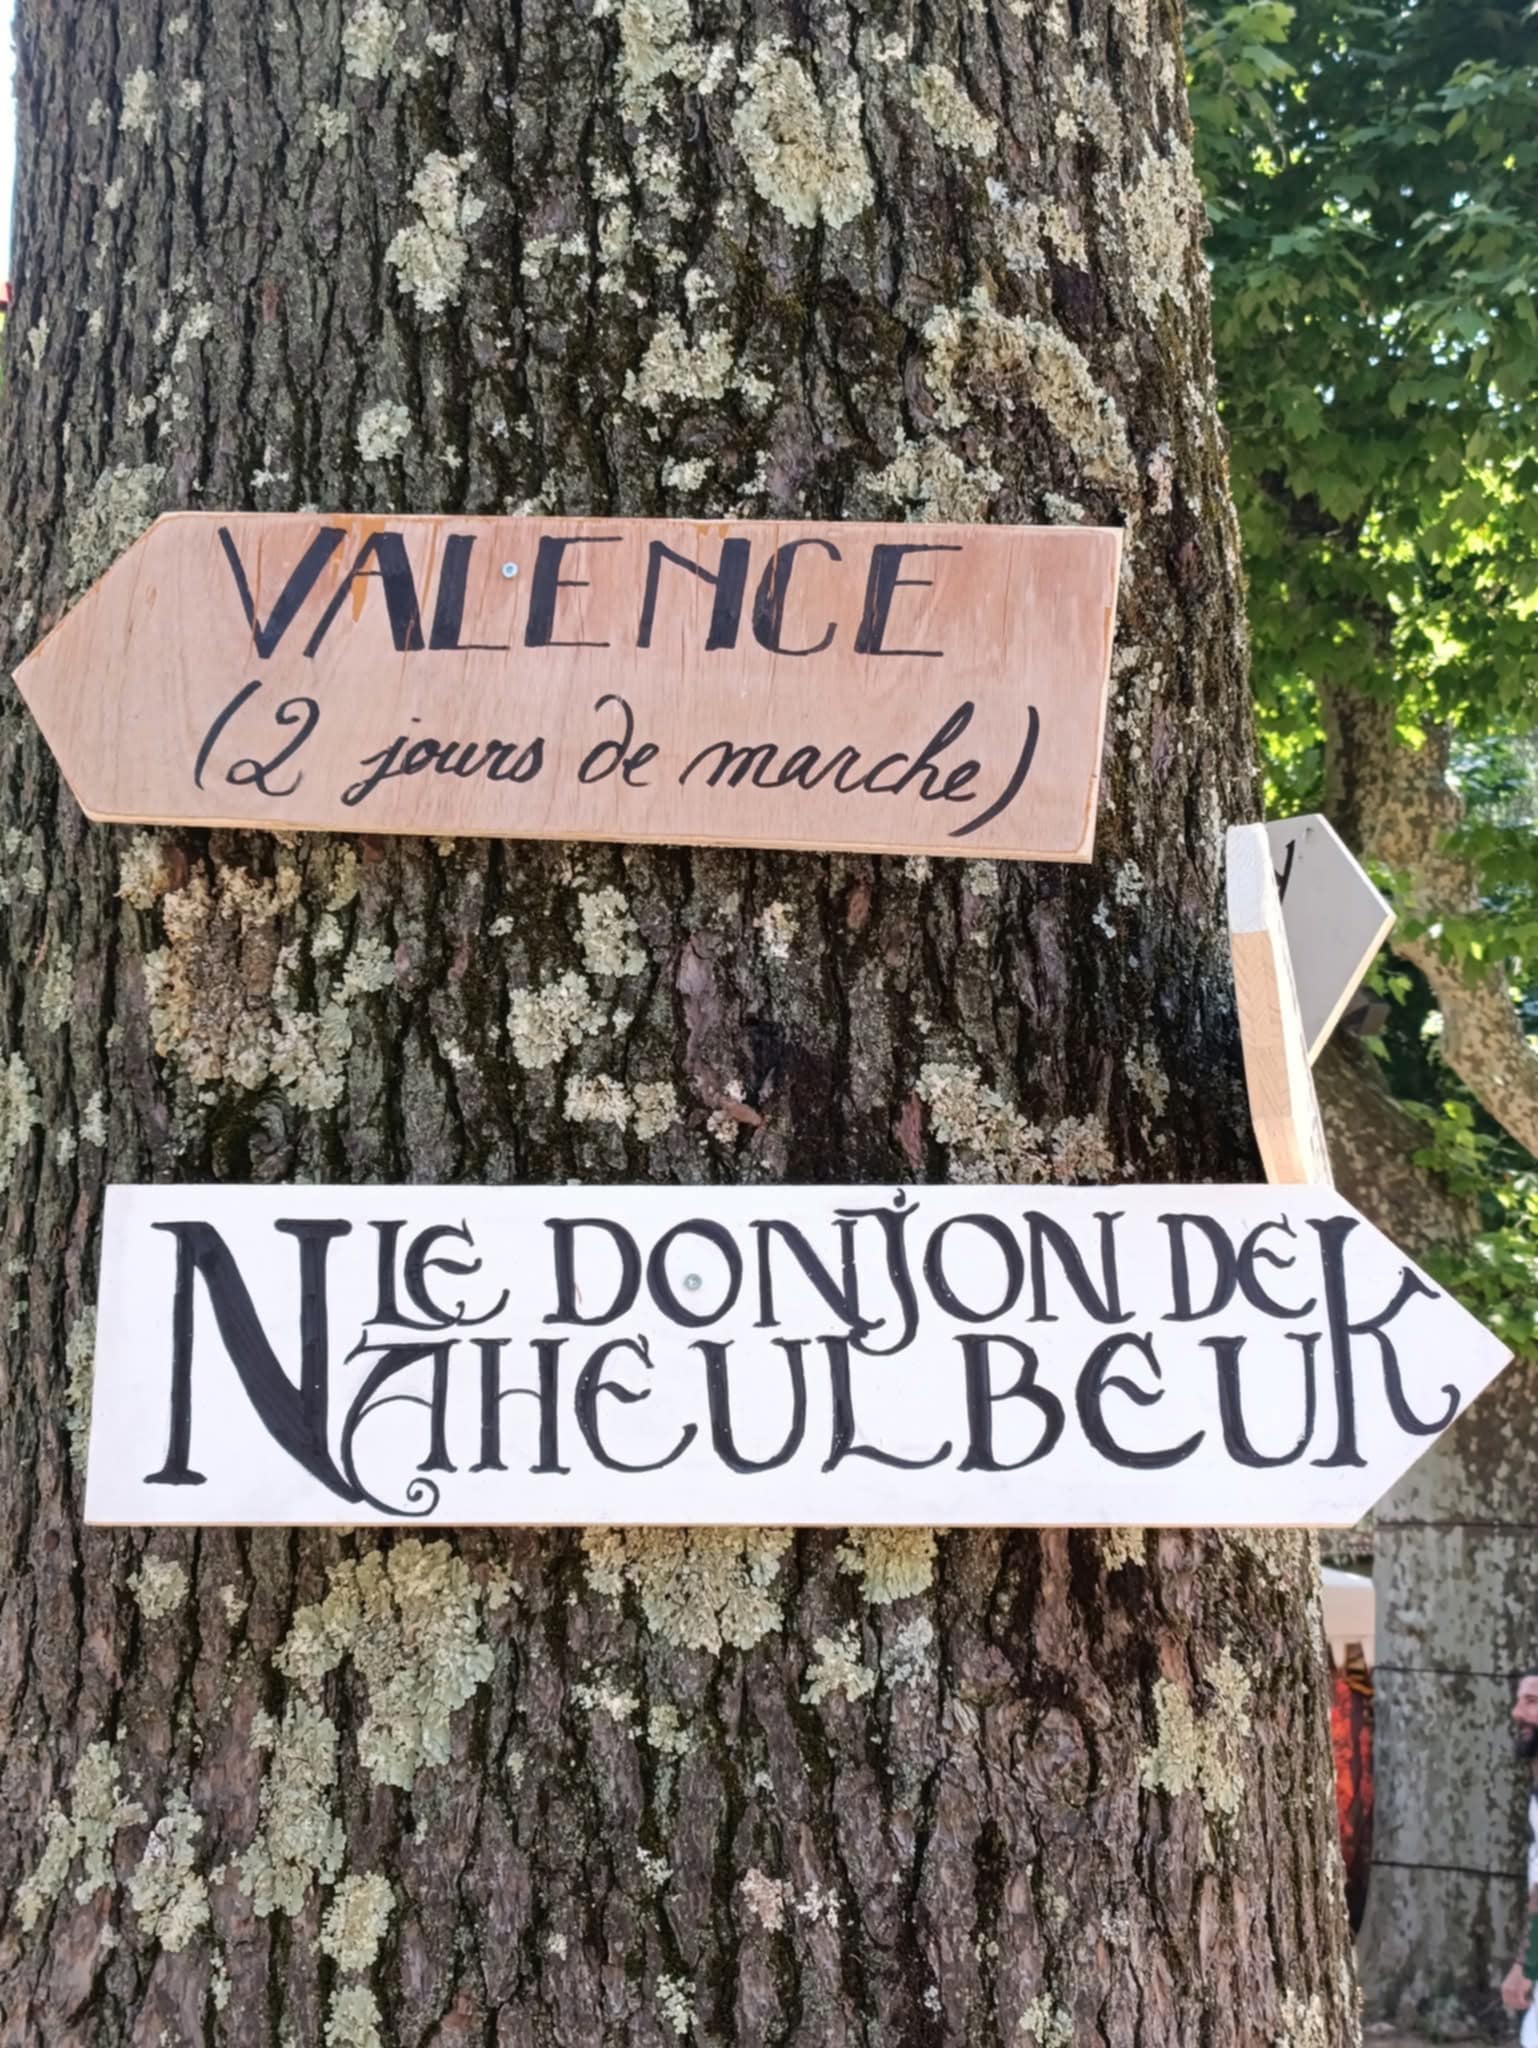 VALENCE
(2 jours de marche)
LE DONJON DE
NAHEULBEUK